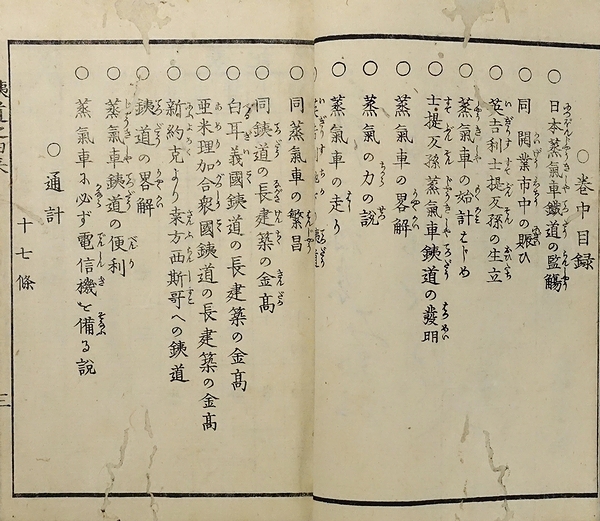 ○巻中目録
○日本蒸氣車鐵道の監觴
○同 開業市中の賑ひ
○英吉利士提反孫の生立
○蒸氣車の始計はじめ
士提反孫蒸氣車銕道の發明
○蒸氣車の畧解
○蒸氣の力の説
○蒸氣車の走り
○同蒸氣車の繁昌
○同銕道の長建築の金高
○白耳義國銕道の長建築の金高
○亜米理加合衆國銕道の長建築の金高
○新約克より桒方西斯哥への銕道
○銕道の畧解
○蒸氣車銕道の便利
○蒸氣車に必ず電信機を備る説
○通計
十七條
三